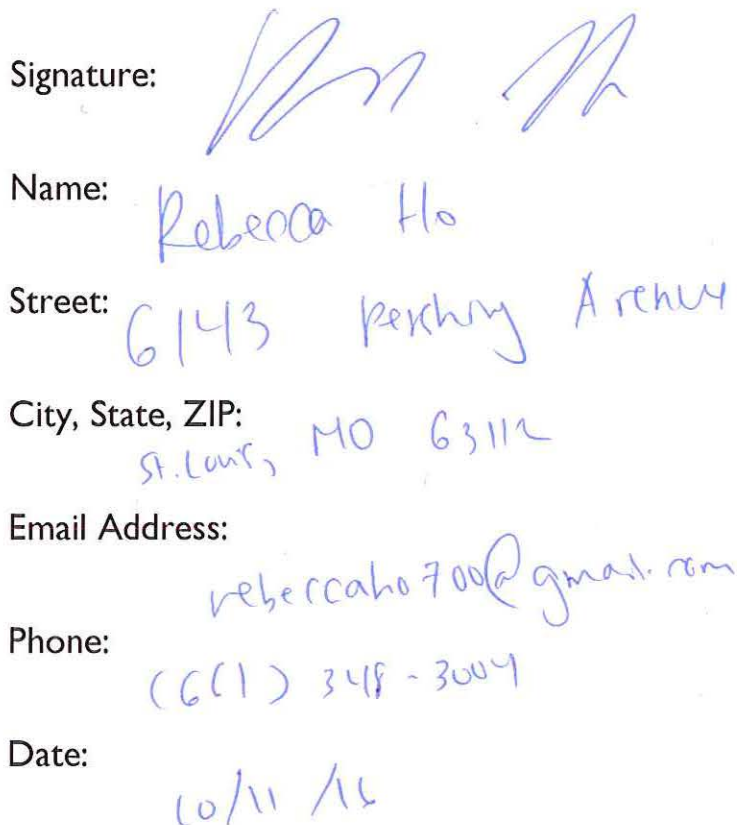 Signature:
Name: Rebecca Ho
Street: 6143 Pershing Avenue
City, State, ZIP:
St. Louis, MO 63112
Email Address:
rebeccaho700@gmail.com
Phone:
(661) 348-3004
Date:
10/11/16